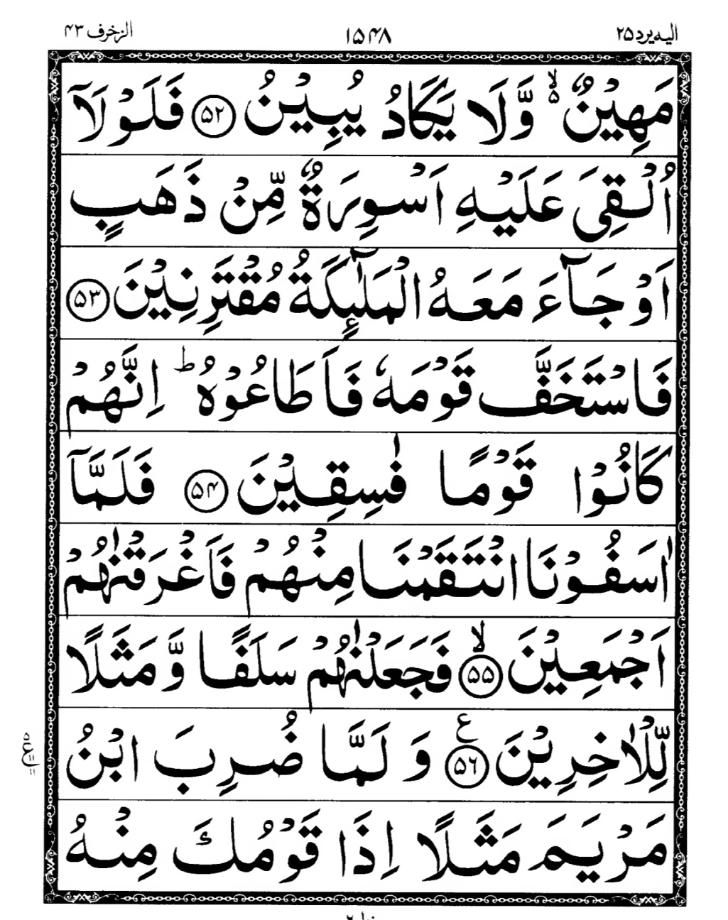 الیہ یرد ۲۵ ۱۵۴۸ الزخرف ۴۳
مَهِیْنٌ ۙ۬ وَّلَا یَكَادُ یُبِیْنُ ﴿۵۲﴾ فَلَوْلَاۤ
اُلْقِیَ عَلَیْهِ اَسْوِرَةٌ مِّنْ ذَهَبٍ
اَوْ جَآءَ مَعَهُ الْمَلٰٓىِٕكَةُ مُقْتَرِنِیْنَ ﴿۵۳﴾
فَاسْتَخَفَّ قَوْمَهٗ فَاَطَاعُوْهُ ؕ اِنَّهُمْ
كَانُوْا قَوْمًا فٰسِقِیْنَ ﴿۵۴﴾ فَلَمَّاۤ
اٰسَفُوْنَا انْتَقَمْنَا مِنْهُمْ فَاَغْرَقْنٰهُمْ
اَجْمَعِیْنَ ﴿۵۵﴾ۙ فَجَعَلْنٰهُمْ سَلَفًا وَّ مَثَلًا
لِّلْاٰخِرِیْنَ ﴿۵۶﴾ ع وَ لَمَّا ضُرِبَ ابْنُ
مَرْیَمَ مَثَلًا اِذَا قَوْمُكَ مِنْهُ